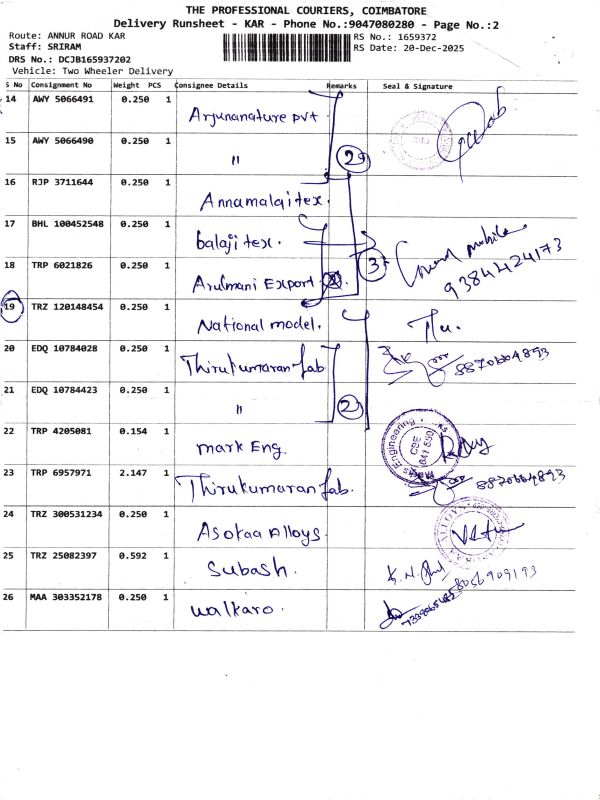 THE PROFESSIONAL COURIERS, COIMBATORE
Delivery Runsheet - KAR - Phone No.:9047080280 - Page No.:2
Route: ANNUR ROAD KAR RS No.: 1659372
Staff: SRIRAM RS Date: 20-Dec-2025
DRS No.: DCJB165937202
Vehicle: Two Wheeler Delivery
S No Consignment No Weight PCS Consignee Details Remarks Seal & Signature
14 AWY 5066491 0.250 1 Arjunanature pvt
15 AWY 5066490 0.250 1 " 2
16 RJP 3711644 0.250 1 Annamalai tex.
17 BHL 100452548 0.250 1 balaji tex.
18 TRP 6021826 0.250 1 Arulmani Export. 3 9384424173
19 TRZ 120148454 0.250 1 National model.
20 EDQ 10784028 0.250 1 Thirukumaran fab
21 EDQ 10784423 0.250 1 " 2
22 TRP 4205081 0.154 1 mark Eng.
23 TRP 6957971 2.147 1 Thirukumaran fab.
24 TRZ 300531234 0.250 1 Asokaa Alloys.
25 TRZ 25082397 0.592 1 Subash. 8056909193
26 MAA 303352178 0.250 1 walkaro.